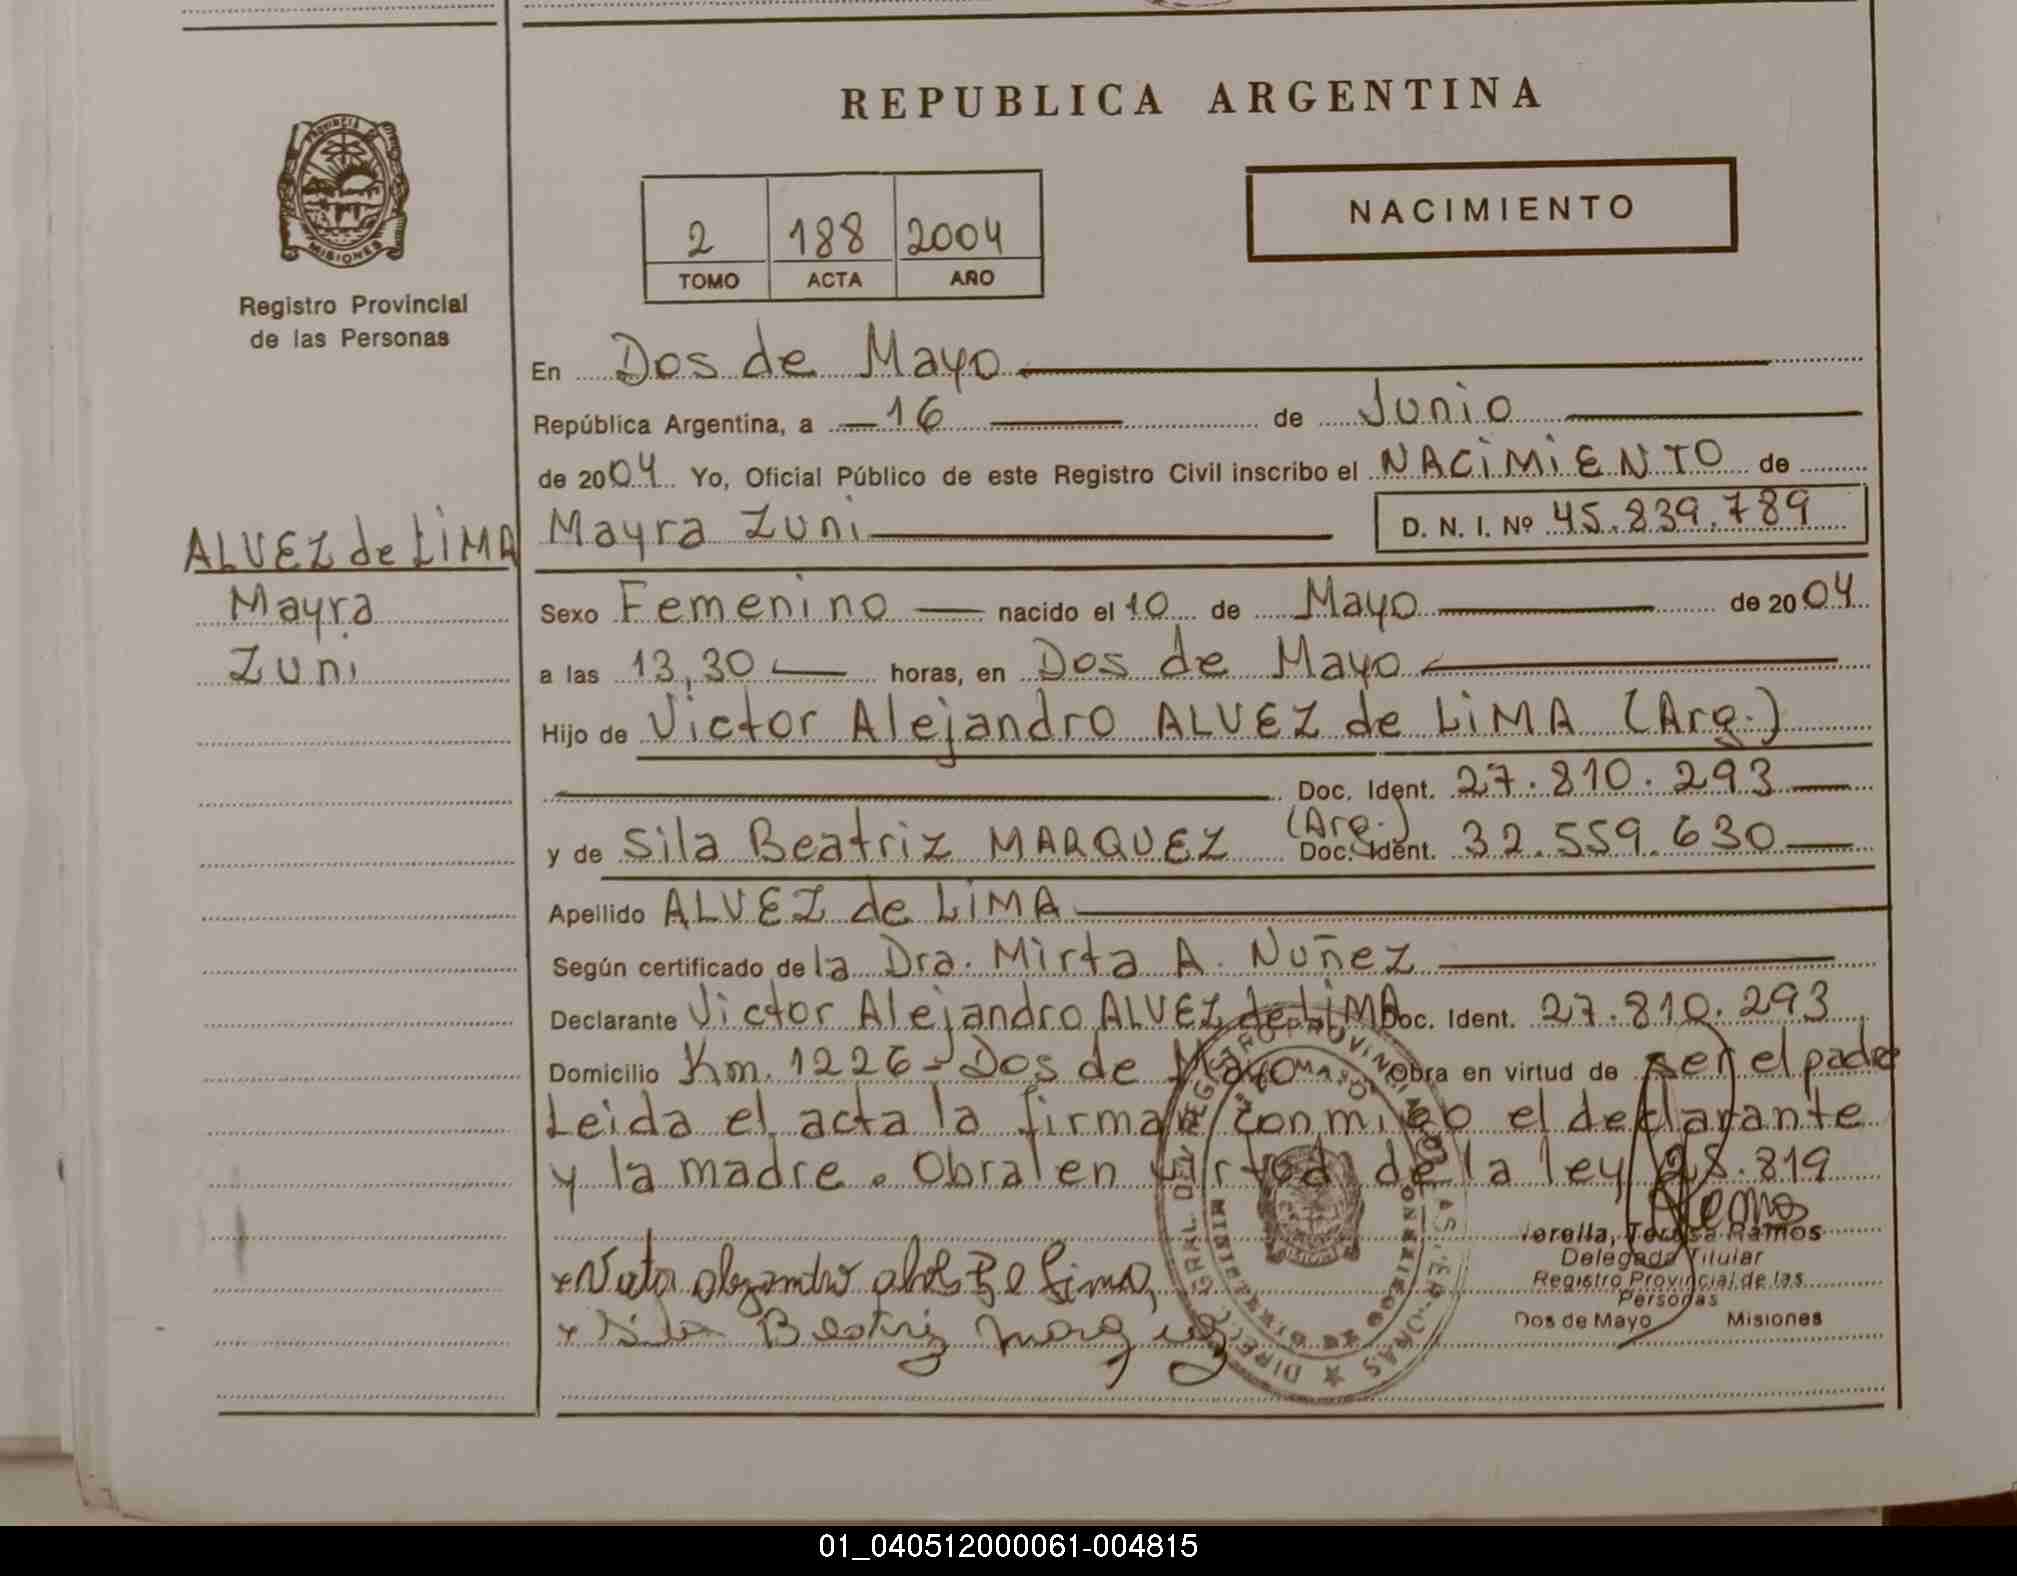 REPUBLICA ARGENTINA
PROVINCIA
MISIONES
Registro Provincial
de las Personas
2 188 2004
TOMO ACTA AÑO
NACIMIENTO
En Dos de Mayo
República Argentina, a 16 de Junio
de 2004 Yo, Oficial Público de este Registro Civil inscribo el NACIMIENTO de
Mayra Zuni D. N. I. Nº 45.839.789
ALVEZ de LIMA
Mayra
Zuni
Sexo Femenino nacido el 10 de Mayo de 2004
a las 13,30 horas, en Dos de Mayo
Hijo de Victor Alejandro ALVEZ de LIMA (Arg.)
Doc. Ident. 27.810.293
y de Sila Beatriz MARQUEZ (Arg.) Doc. Ident. 32.559.630
Apellido ALVEZ de LIMA
Según certificado de la Dra. Mirta A. Nuñez
Declarante Victor Alejandro ALVEZ de LIMA Doc. Ident. 27.810.293
Domicilio Km. 1226 - Dos de Mayo Obra en virtud de ser el padre
Leida el acta la firman conmigo el declarante
y la madre. Obral en virtud de la ley 25.819
Teresa Ramos
Delegada Titular
Registro Provincial de las
Personas
Dos de Mayo Misiones
x Victor alejandro alves De Lima
x Sila Beatriz marquez
01_040512000061-004815